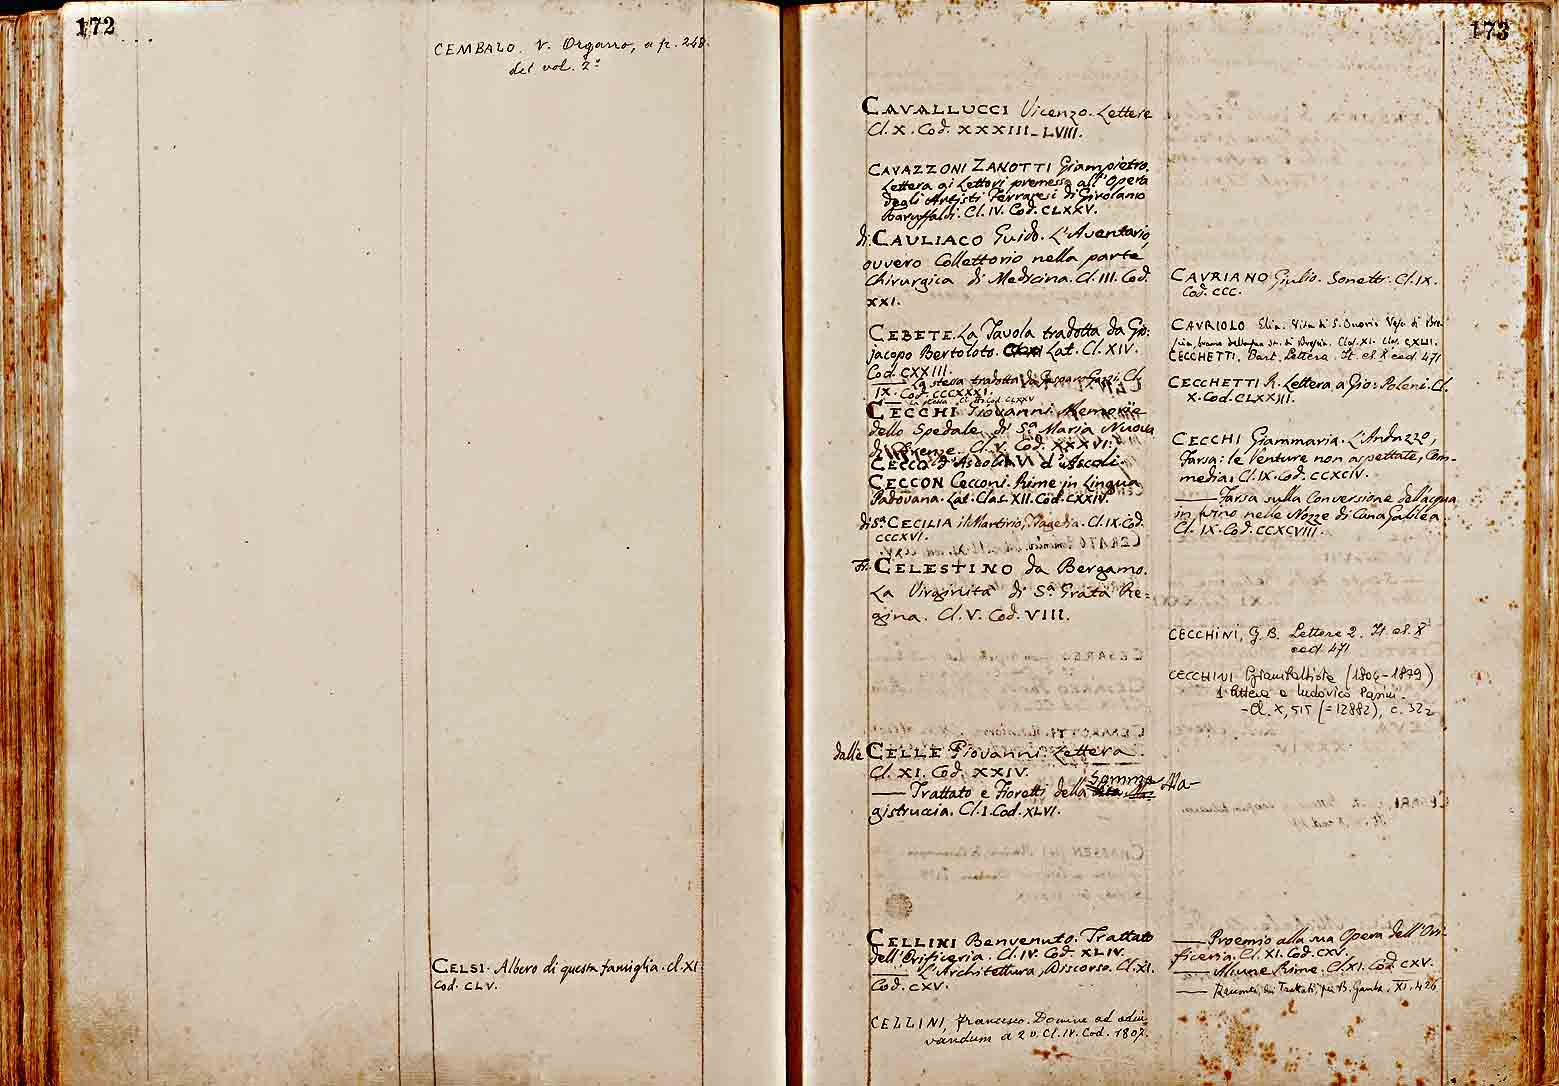 172
CEMBALO. v. Organo, a p. 248.
del vol. 2º
CELSI. Albero di questa famiglia. Cl. XI
Cod. CLV.
173
CAVALLUCCI Vicenzo. Lettere
Cl. X. Cod. XXXIII-LVIII.
CAVAZZONI ZANOTTI Giampietro.
Lettera ai Lettori premessa all'Opera
degli Artisti Ferraresi di Girolamo
Baruffaldi. Cl. IV. Cod. CLXXV.
di CAULIACO Guido. L'Aventario,
ovvero Collettorio nella parte
Chirurgica di Medicina. Cl. III. Cod.
XXI.
CEBETE. La Tavola tradotta da Gio:
jacopo Bertoloto. Lat. Cl. XIV.
Cod. CXXIII.
— La stessa tradotta da Gasparo Gozzi. Cl.
IX. Cod. CCCXXXI.
La stessa Cod. CLXXV
CECCHI Giovanni. Memorie
dello Spedale di Sª Maria Nuova
di Firenze. Cl. V. Cod. XXXVI.
CECCO d'Ascoli. V. d'Ascoli.
CECCON Cecconi. Rime in Lingua
Padovana. Lat. Clas. XII. Cod. CXXIV.
di Sª CECILIA il Martirio, Tragedia. Cl. IX. Cod.
CCCXVI.
Fr. CELESTINO da Bergamo.
La Virginità di Sª Grata Re=
gina. Cl. V. Cod. VIII.
dalle CELLE Giovanni. Lettera.
Cl. XI. Cod. XXIV.
— Trattato e Fioretti della Somma Ma-
gistruccia. Cl. I. Cod. XLVI.
CELLINI Benvenuto. Trattato
dell'Orificeria. Cl. IV. Cod. XLIV.
— L'Architettura, Discorso. Cl. XI.
Cod. CXV.
CELLINI, Francesco. Domine ad adiu
vandum a 2 v. Cl. IV. Cod. 1807.
CAVRIANO Giulio. Sonetti. Cl. IX.
Cod. CCC.
CAVRIOLO Elia. Vita di S. Vesc. di Bre
Clas. XI. CXLI.
CECCHETTI, Bart. Lettera. It. cl. X cod. 471
CECCHETTI R. Lettera a Gio: Poleni. Cl.
X. Cod. CLXXIII.
CECCHI Giammaria. L'Andazzo,
Farsa: le Venture non aspettate, Com-
media. Cl. IX. Cod. CCXCIV.
— Farsa sulla Conversione dell'acqua
in vino nelle Nozze di Cana Galilea.
Cl. IX. Cod. CCXCVIII.
CECCHINI, G. B. Lettere 2. It. cl. X
cod 471
CECCHINI Giambattista (1804-1879)
1 lettera a Ludovico Pasini.
- Cl. X, 515 (=12882), c. 322
— Proemio alla sua Opera dell'Ori-
ficeria. Cl. XI. Cod. CXV.
— Alcune Rime. Cl. XI. Cod. CXV.
— Trattati, per B. Gamba. XI. 426